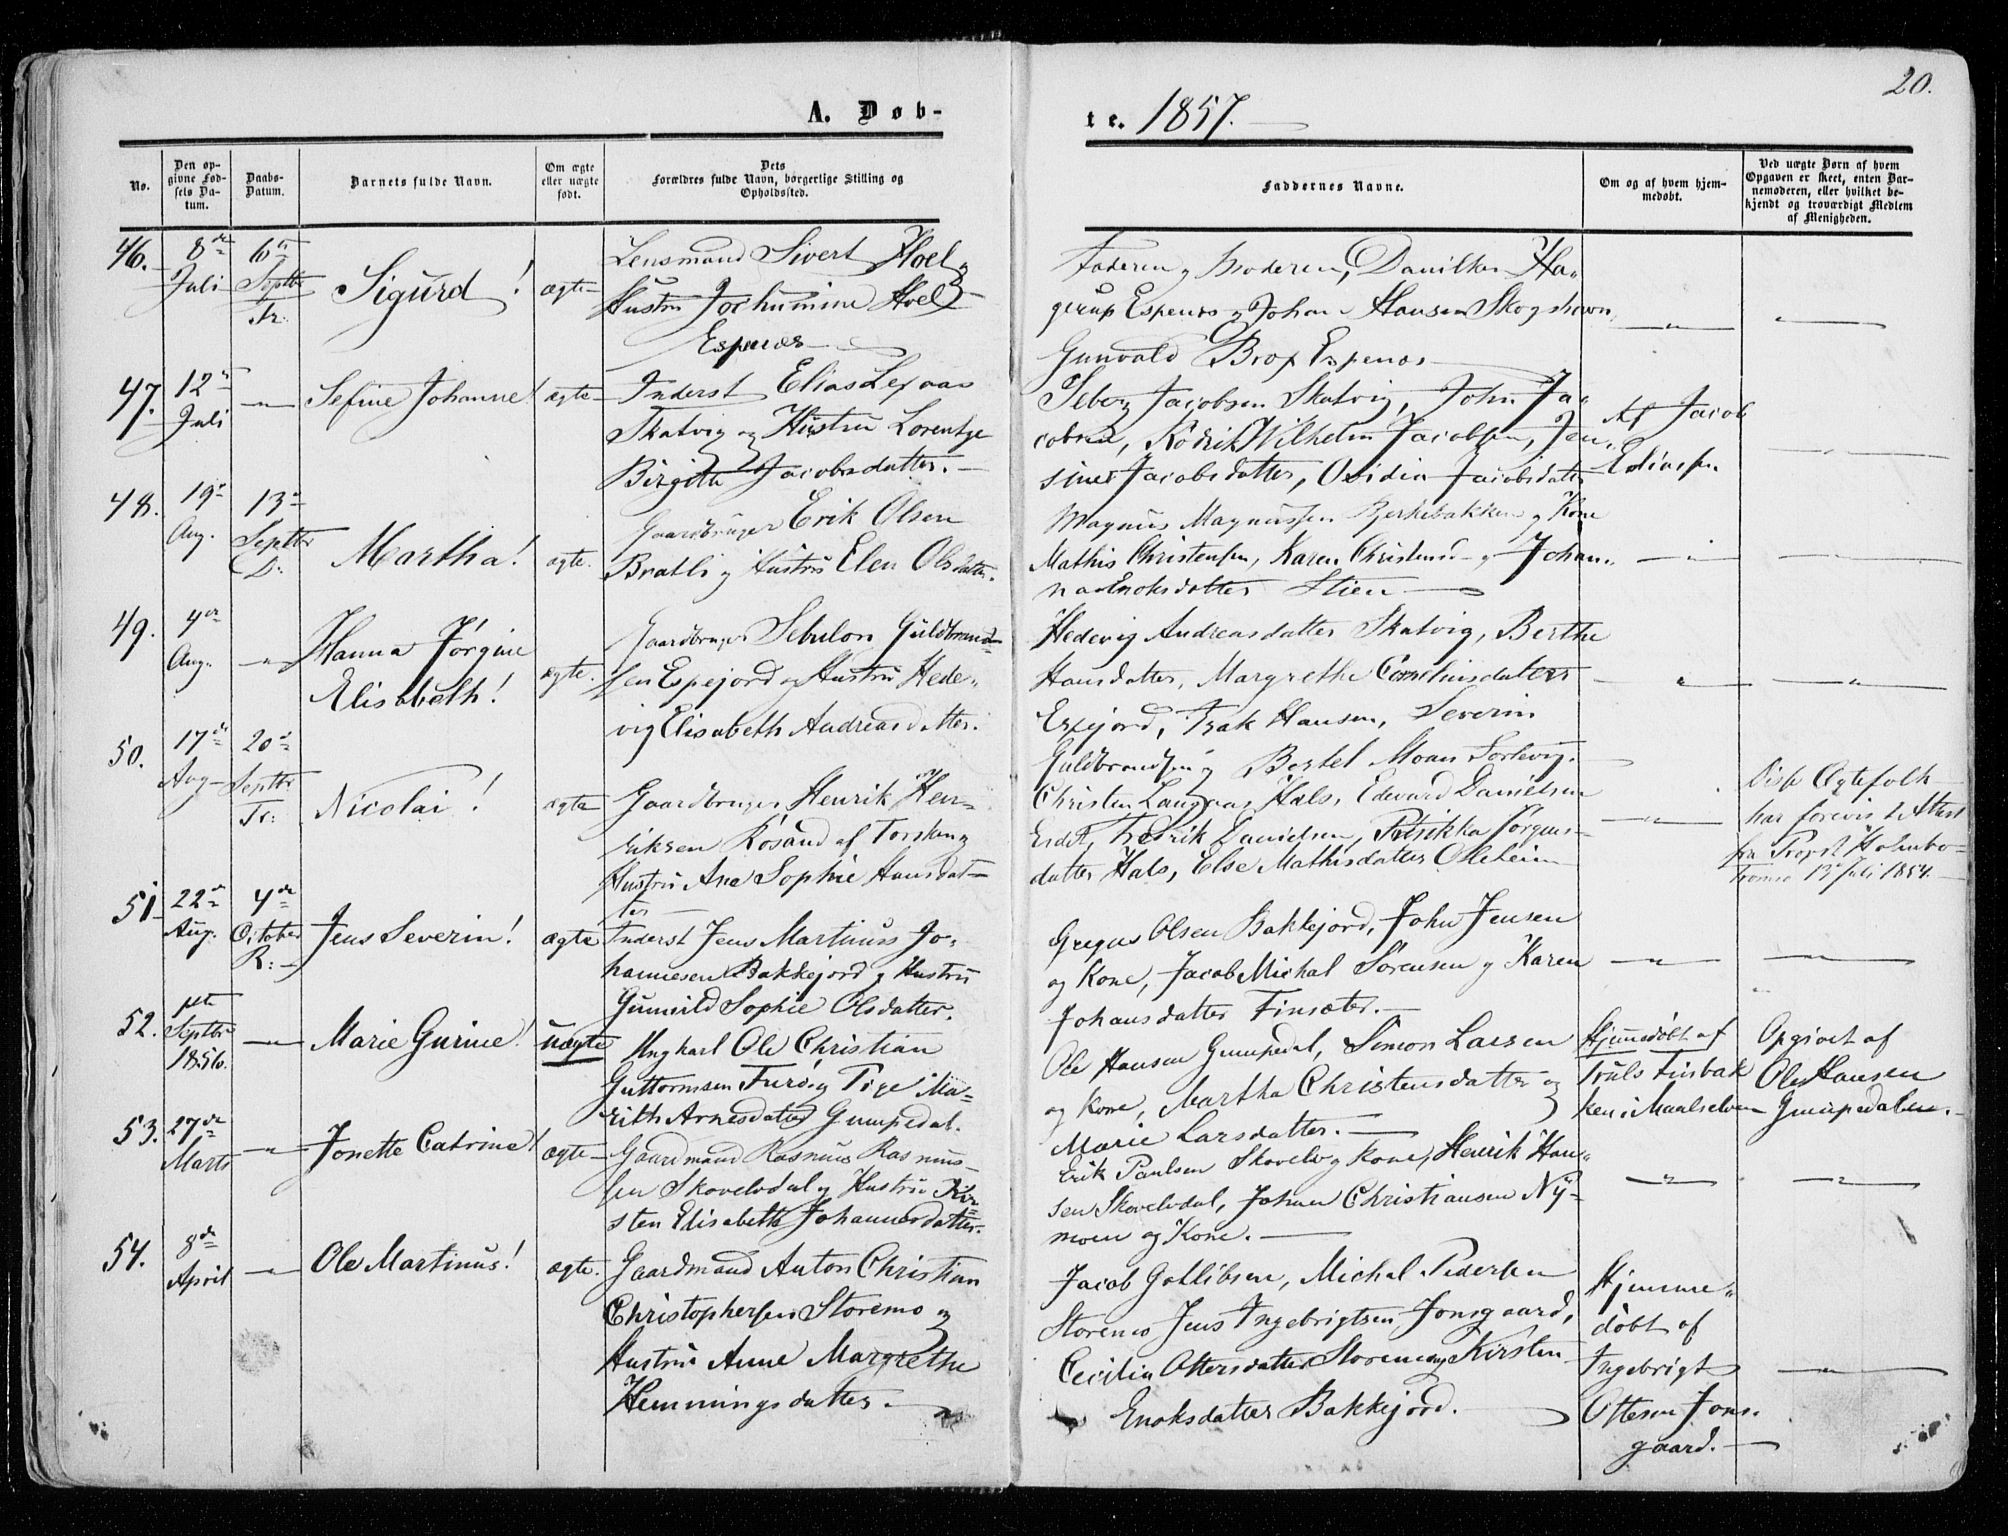 20.
A. Døb-
te. 1857.
No.
Den op-
givne Fød-
sels Da-
tum.
Daabs-
Datum.
Barnets fulde Navn.
Om ægte
eller uægte
født.
Dets
Forældres fulde Navn, borgerlige Stilling og
Opholdssted.
Faddernes Navne.
Om og af hvem hjem-
medøbt.
Ved uægte Børn af hvem
Opgaven er skeet, enten Bar-
nemoderen, eller hvilket be-
kjendt og troværdigt Medlem
af Menigheden.
46.
8de
Juli
6te
Septbr
Tr.
Sigurd!
ægte
Lensmand Sivert Hoel og
Hustru Jochumine Hoel
Espenæs
Faderen og Moderen, Ha-
gerup Espenæs og Johan Hansen Skogshavn,
Gunvald Brox Espenæs
47.
12te
Juli
Sefine Johanne!
ægte
Inderst Elias Lexaas
Skatvig og Hustru Lorentze
Birgitte Jacobsdatter.
Jacobsen Skatvig, John Ja-
cobsen, Wilhelm Jacobsen, Jen-
sine Jacobsdatter, Ovidia Jacobsdatter
Af Jacob
Eliassen
48.
19de
Aug.
13de
Septbr
D:
Martha!
ægte.
Gaardbruger Erik Olsen
Bratli og Hustru Elen Olsdatter.
Magnus Magnussen Bjerkebakken og Kone
Mathis Christensen, Karen Christensd og Johan-
na Enoksdatter Stien
49.
4de
Aug.
Hanna Jørgine
Elisabeth!
ægte.
Gaardbruger Sebulon Guldbrand-
sen Espejord og Hustru Hede-
vig Elisabeth Andreasdatter.
Hedevig Andreasdatter Skatvig, Berthe
Hansdatter, Margrethe Corneliusdatter
Espejord, Isak Hansen, Severin
Guldbrandsen og Bertel Moses Sørlevig.
50.
17de
Aug
20de
Septbr
Tr:
Nicolai!
ægte
Gaardbruger Henrik Hen-
riksen Rosand af Torsken og
Hustru Ane Sophie Hansdat-
ter
Christen Langaas Hals, Edevard Danielsen
Fredrik Danielsen, Petrikka Jørgens-
datter Hals, Else Mathisdatter Oleheim
Disse Ægtefolk
har forevist Attest
fra Propst Holmbo-
Tromsø 13 Juli 1854.
51
22de
Aug.
4de
October
R:
Jens Severin!
ægte
Inderst Jens Martinus Jo-
hannesen Bakkejord og Hustru
Gunnild Sophie Olsdatter.
Gregus Olsen Bakkejord, John Jensen
og Kone, Jacob Michal Sørensen og Karen
Johansdatter Finsæter.
52.
1ste
Septbr
1856.
Marie Gurine!
uægte
Ungkarl Ole Christian
Guttormsen Furø og Pige Ma-
rith Arnesdatter Gumpedal.
Ole Hansen Gumpedal, Simon Larsen
og Kone, Martha Christensdatter og
Marie Larsdatter.
Hjemmedøbt af
Truls Finbak
ken i Maalselven
Opgivet af
Ole Hansen
Gumpedalen.
53.
27de
Marts
Jonette Catrine!
ægte
Gaardmand Rasmus Rasmus-
sen Skovelvdal og Hustru Kir-
sten Elisabeth Johannesdatter.
Erik Paulsen Skovelv og Kone, Henrik Han-
sen Skovelvdal, Johan Christiansen Ny-
moen og Kone.
54.
8de
April
Ole Martinus!
ægte.
Gaardmand Anton Christian
Christophersen Storemo og
Hustru Anne Margrethe
Hemmingsdatter.
Jacob Gotlibsen, Michal Pedersen
Storemo Jens Ingebrigtsen Jonsgaard,
Cecilia Ottersdatter Storemo og Kirsten
Enoksdatter Bakkejord.
Hjemme-
døbt af
Ingebrigt
Ottesen Jons-
gaard.